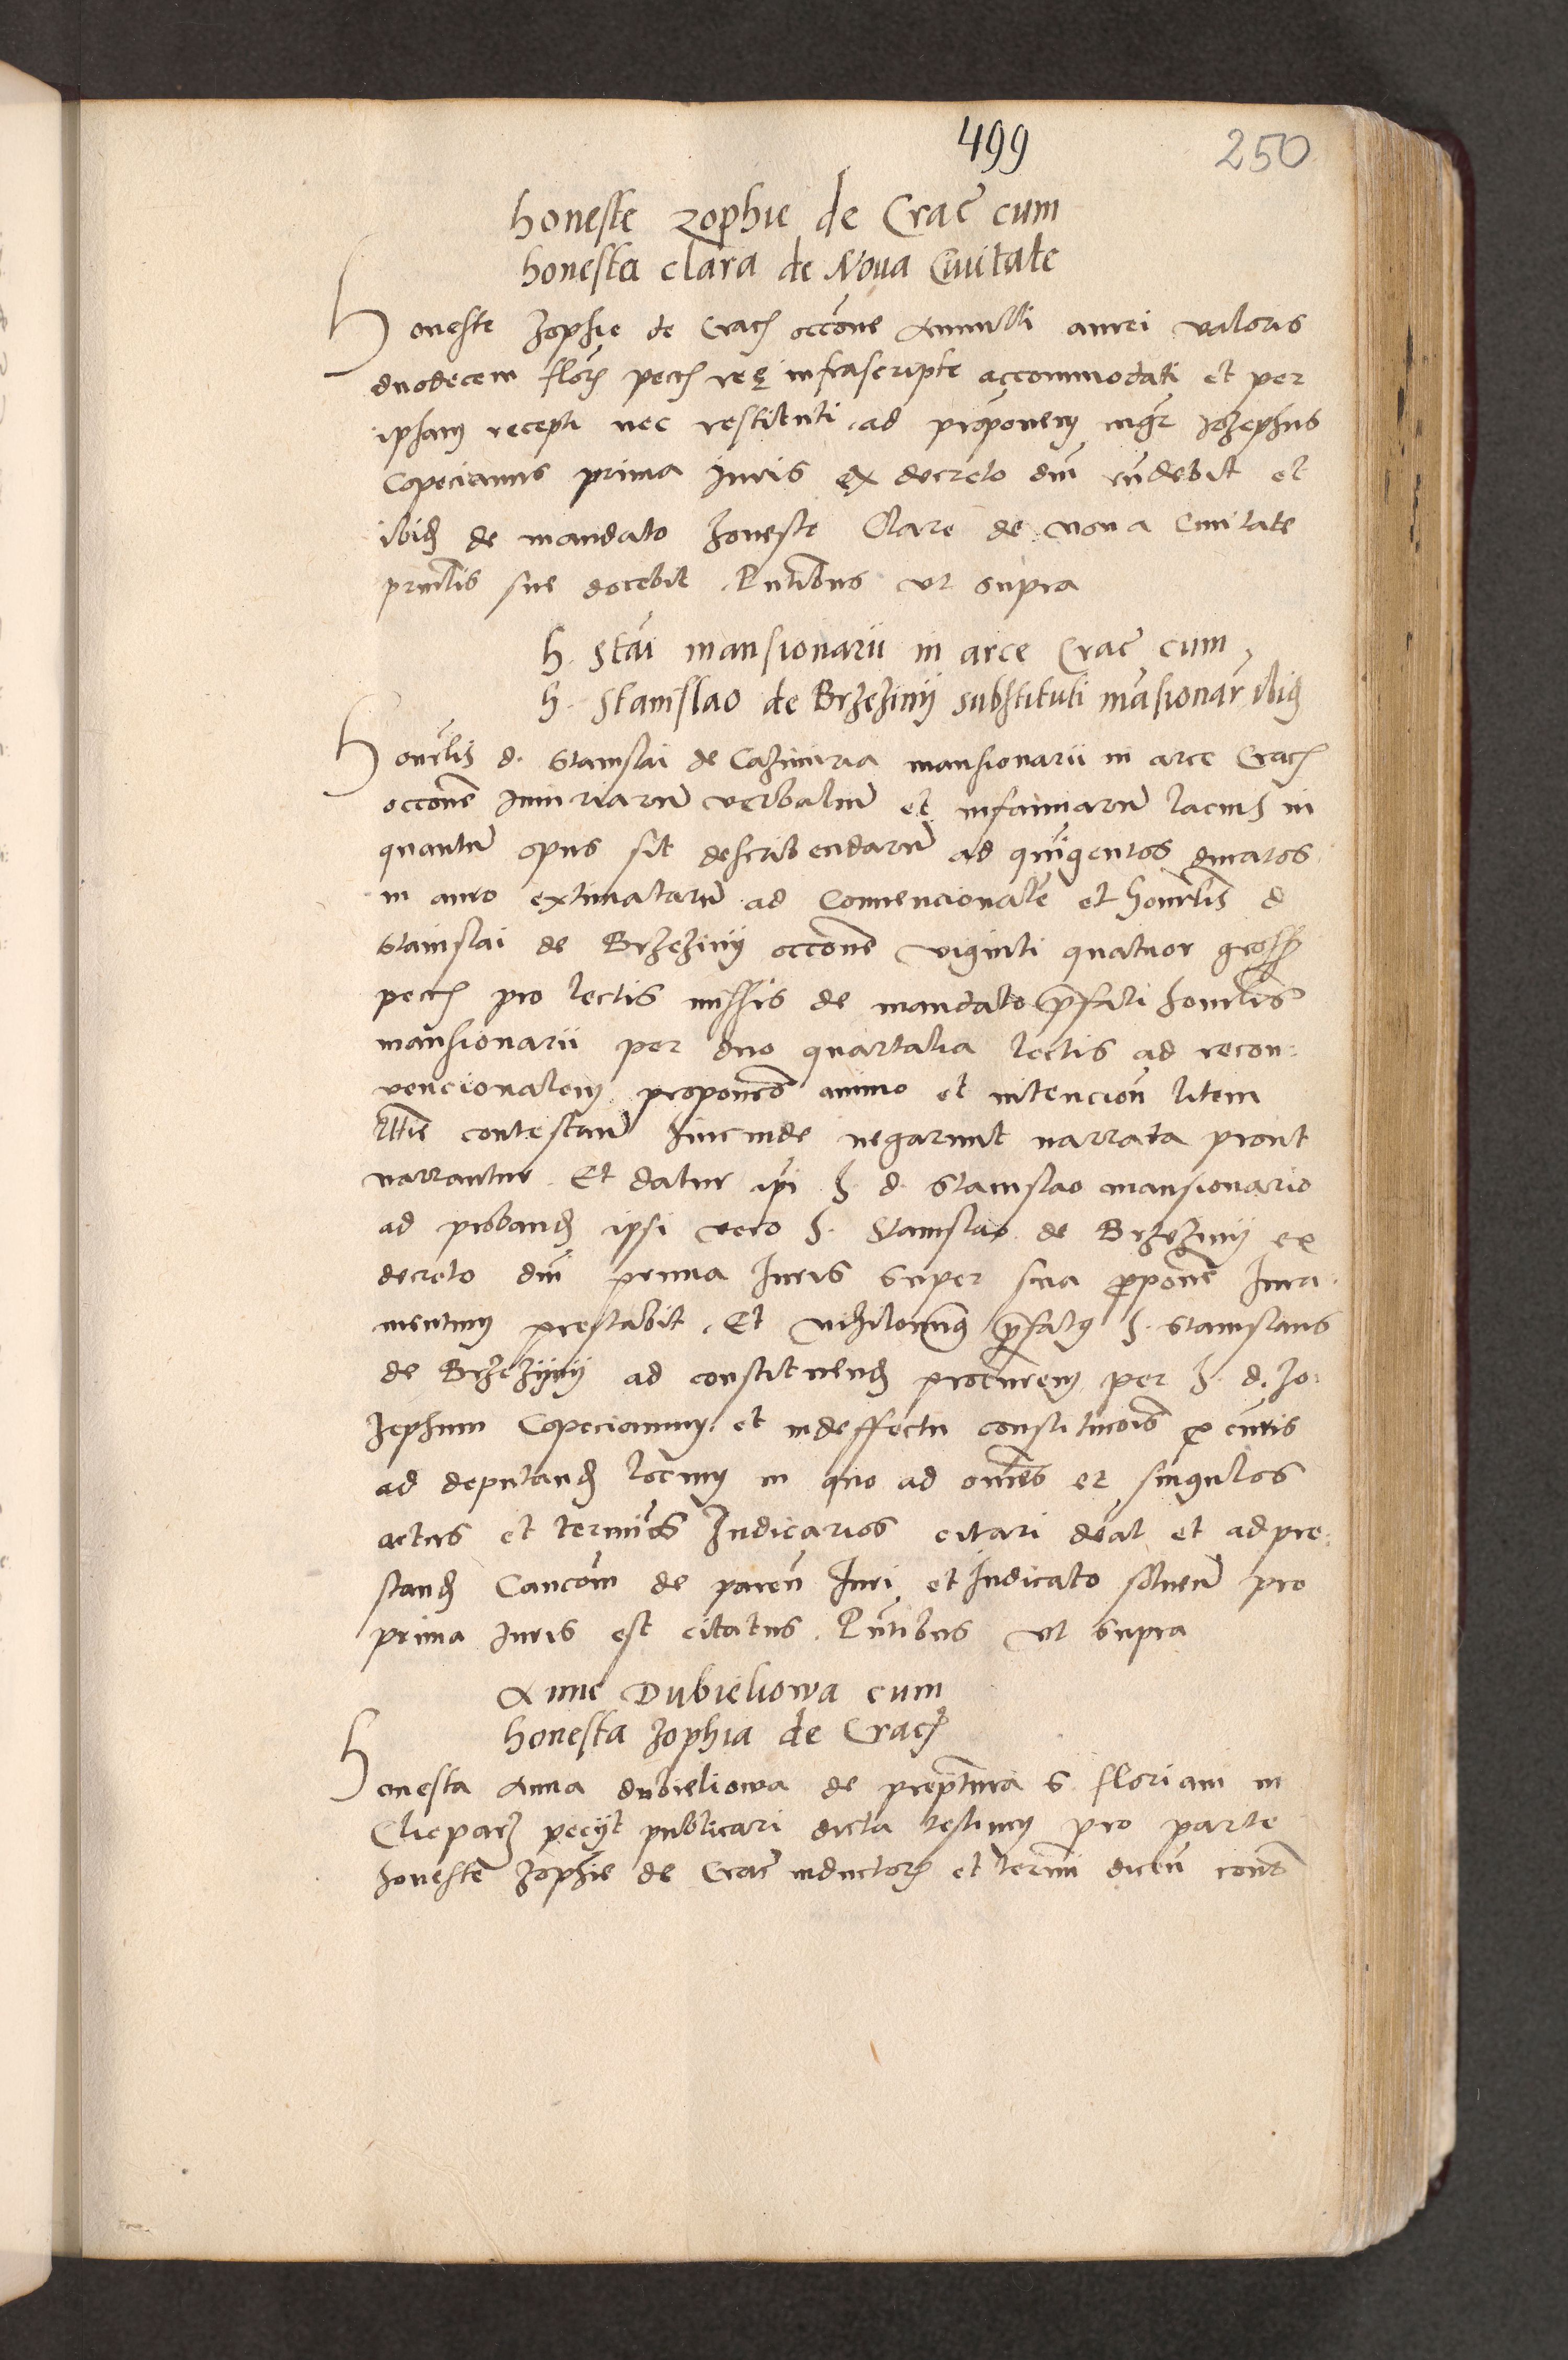 499
250
honeste zophie de Crac̄ cum
honesta clara de Noua Ciuitate
Honeste Zophie de Crac̄ occōne Annulli aurei valoris
duodecem flor̄ pecc̄ ree infrascripte accommodati et per
ipsam recepti nec restituti ad proponem mgr̄ Jozephus
Copecianus prima iuris ex decreto dm̄ rn̄debit et
ibid̄ de mandato honeste Clare de noua Ciuitate
prin̄lis sue docebit. Pn̄tibus vt supra
h. Stai mansionarii in arce Crac̄ cum
h. Stanislao de Brzeziny substituti māsionar̄ ibid̄
Honrlis d. Stanislai de Cazimiria mansionarii in arce Crac̄
occōne iniuriarū verbaliū et infamiarū lacius in
quantū opus sit describendarū ad quīgentos ducatos
in auro extimatarū ad Conuencionalē et honrlis d
Stanislai de Brzeziny occōne viginti quatuor gross̄
pecc̄ pro lectis missis de mandato p̄fati honrlis
mansionarii per duo quartalia lectis ad recon:
vencionalem propones animo et intencioñ litem
ltīe contestan̄ hincinde negarunt narrata prout
narrantur. Et datur ipi h. d. Stanislao mansionario
ad proband̄ ipsi vero h. Stanislao de Brzeziny ex
decreto dm̄ prima Iuris super sua p̄ponē iura:
mentum prestabit. Et nihilominus p̄fatus h. Stanislaus
de Brzeziny ad constituend̄ procurem per h. d. Jo:
zephum Copecianum et in deffectu constitucois
ad deputand̄ locum in quo ad omēs et singulos
actus et terminos Iudiciarios citari deat et ad pre:
stand̄ Caucom̄ de paren̄ Iuri et Iudicato soluen̄ pro
prima Iuris est citatus. Pn̄tibus vt supra
Anne Dubieliowa cum
honesta Zophia de Crac̄
Honesta Anna dubieliowa de prep̄tura S. floriani in
Clepar̄ peciit publicari dicta testium pro parte
honeste Zophie de Crac̄ inductor̄ et termī dicen̄ cons̄